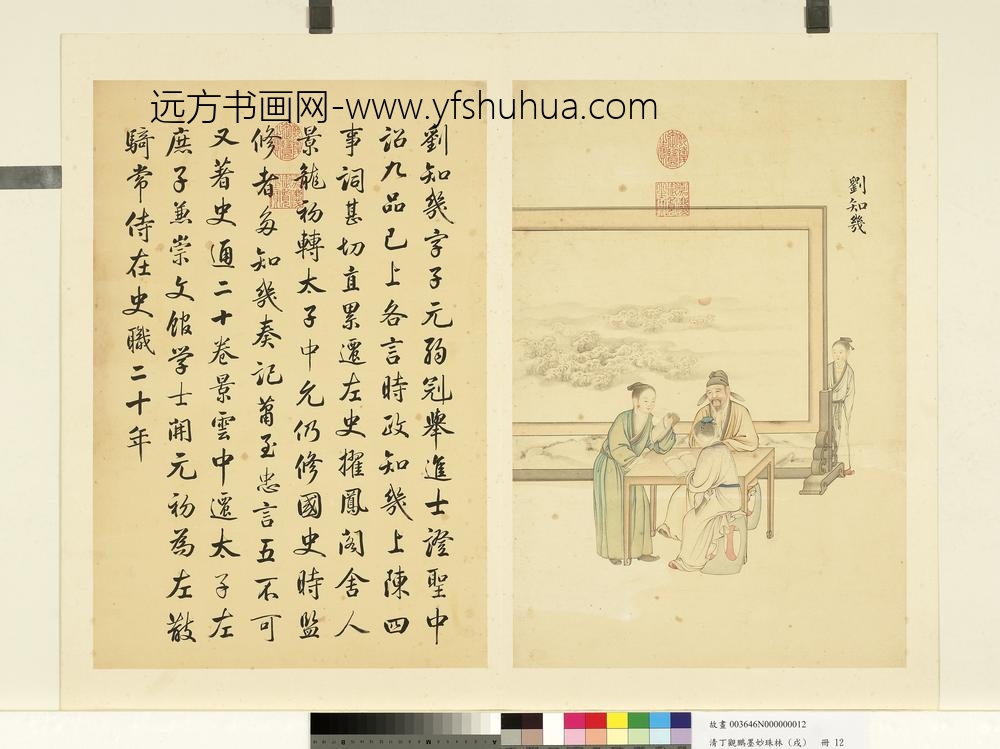 远方书画网-www.yfshuhua.com
劉知幾
劉知幾字子元弱冠舉進士證聖中
詔九品已上各言時政知幾上陳四
事詞甚切直累遷左史擢鳳閣舍人
景龍初轉太子中允仍修國史時監
修者多知幾奏記蕭至忠言五不可
又著史通二十卷景雲中遷太子左
庶子兼崇文館学士開元初為左散
騎常侍在史職二十年
故畫 003646N000000012
清丁觀鵬墨妙珠林（戌） 冊 12